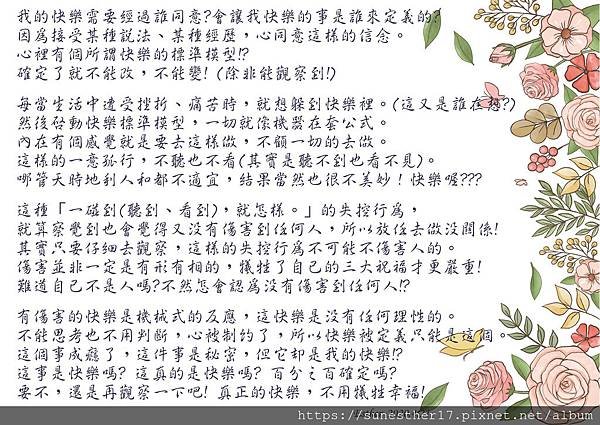 我的快樂需要經過誰同意?會讓我快樂的事是誰來定義的?
因為接受某種說法、某種經歷，心同意這樣的信念。
心裡有個所謂快樂的標準模型!?
確定了就不能改，不能變! (除非能觀察到!)
每當生活中遭受挫折、痛苦時，就想躲到快樂裡。(這又是誰在想?)
然後啟動快樂標準模型，一切就像機器在套公式。
內在有個感覺就是要去這樣做，不顧一切的去做。
這樣的一意孤行，不聽也不看(其實是聽不到也看不見)。
哪管天時地利人和都不適宜，結果當然也很不美妙！快樂喔???
這種「一碰到(聽到、看到)，就怎樣。」的失控行為，
就算察覺到也會覺得又沒有傷害到任何人，所以放任去做沒關係!
其實只要仔細去觀察，這樣的失控行為不可能不傷害人的。
傷害並非一定是有形有相的，犧牲了自己的三大祝福才更嚴重!
難道自己不是人嗎?不然怎會認為沒有傷害到任何人!?
有傷害的快樂是機械式的反應，這快樂是沒有任何理性的。
不能思考也不用判斷，心被制約了，所以快樂被定義只能是這個。
這個事成癮了，這件事是秘密，但它卻是我的快樂!?
這事是快樂嗎? 這真的是快樂嗎? 百分之百確定嗎?
要不，還是再觀察一下吧! 真正的快樂，不用犧牲幸福!
https://sunesther17.pixnet.net/album